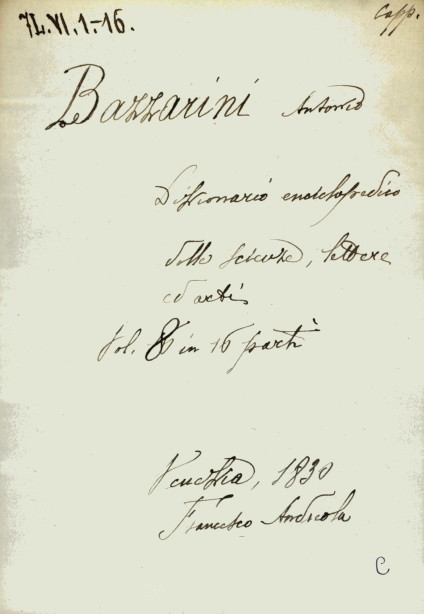 7L.VI.1.-16.
Capp.
Bazzarini Antonio
Dizionario enciclopedico
delle scienze, lettere
ed arti
Vol. 8 in 16 parti
Venezia, 1830
Francesco Andreola
C